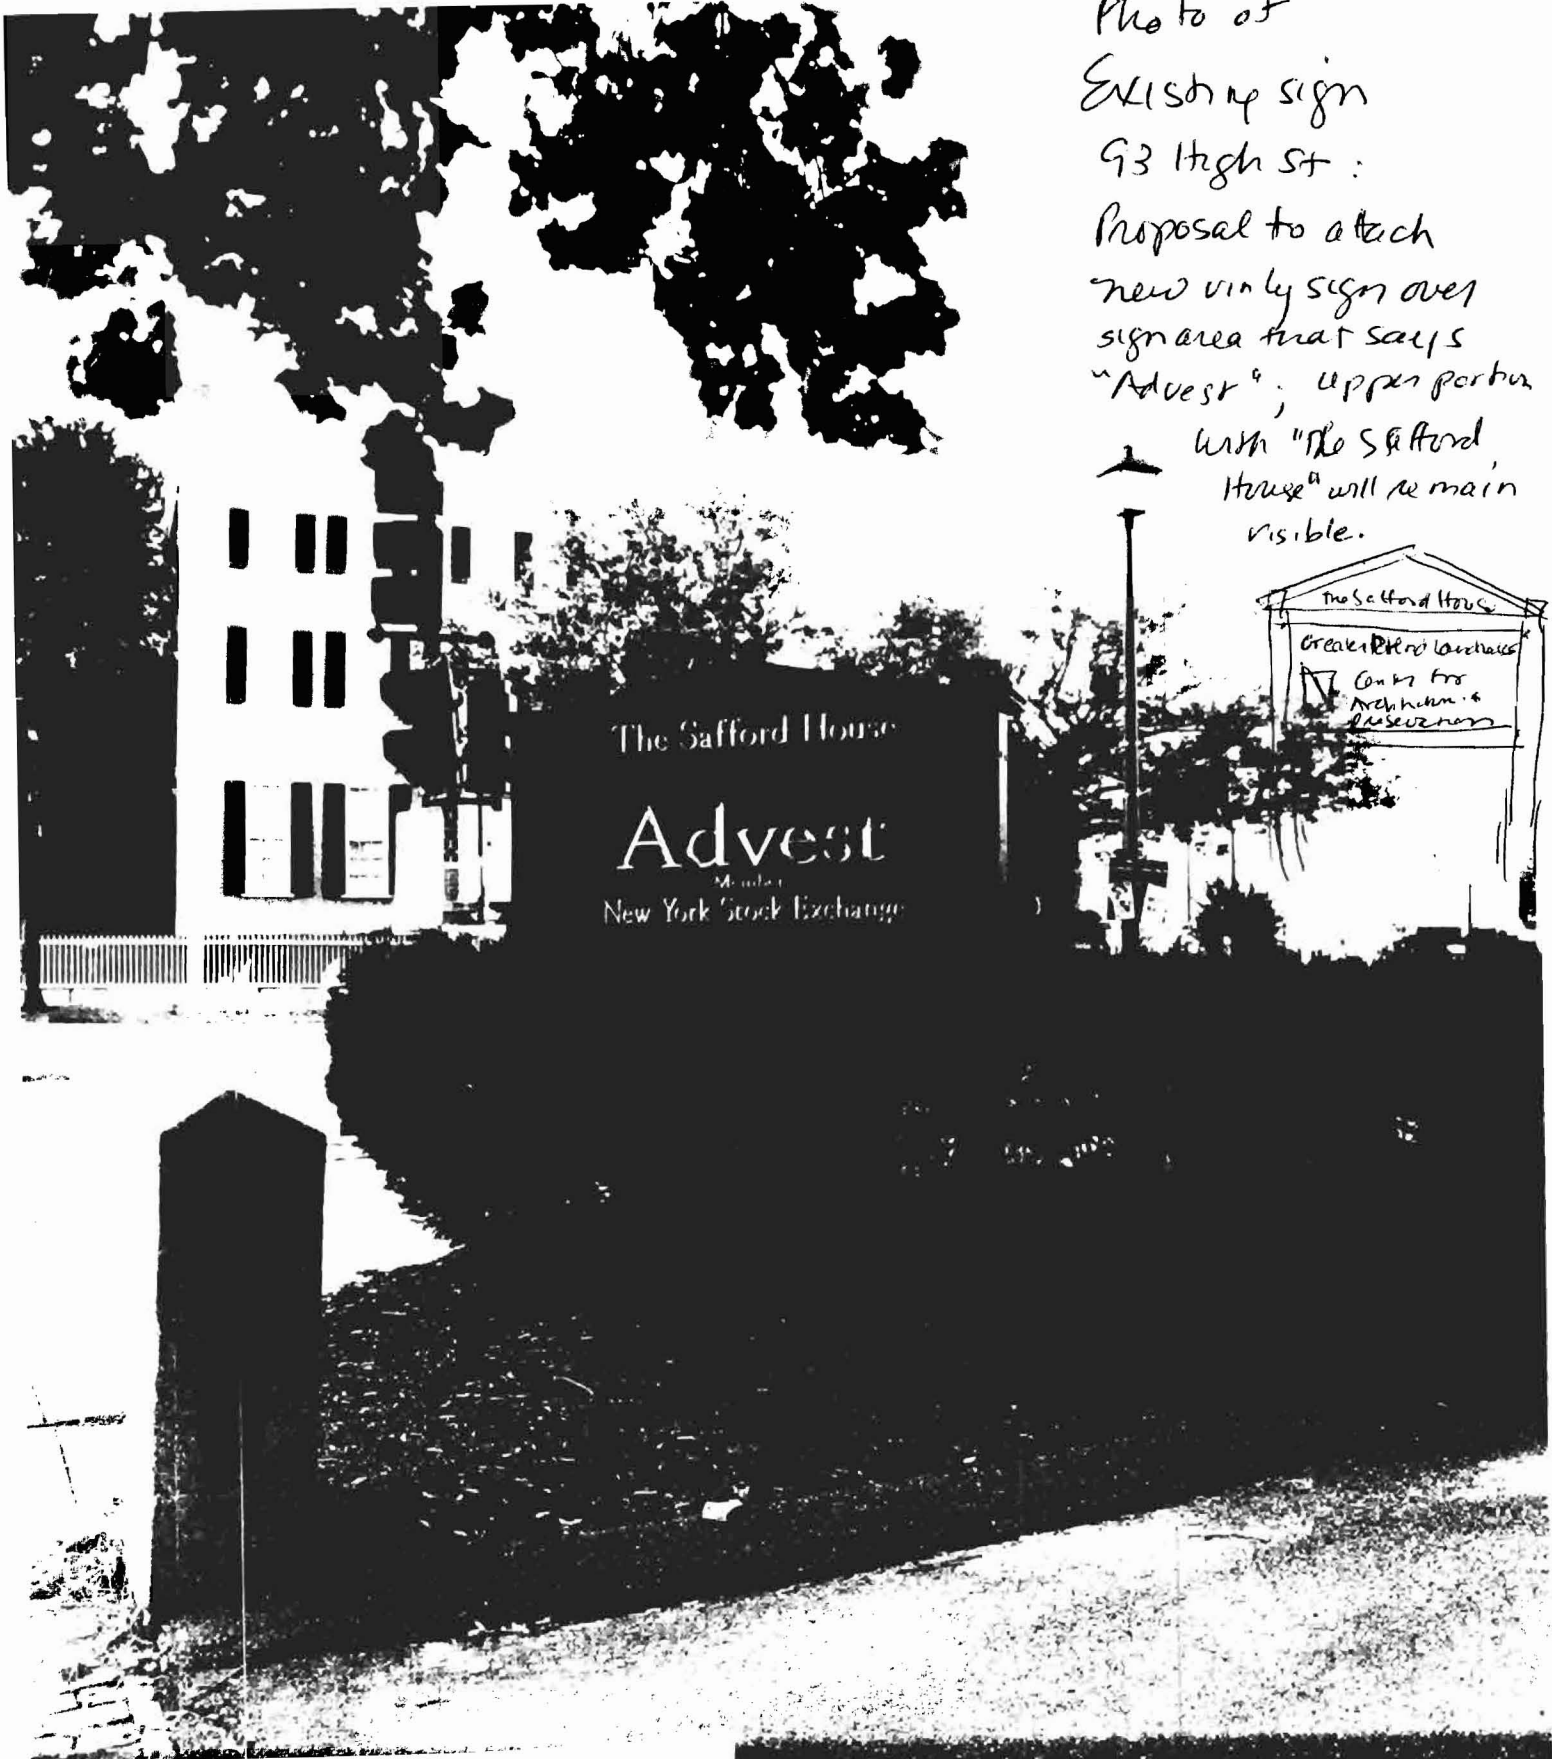 Photo of
Existing sign
93 High St :
Proposal to attach
new vinly sign over
sign area that says
"Advest" ; upper portion
with "The Safford
House" will remain
visible.
The Safford House
Greater Portland Landmarks
Center for
Architecture &
Preservation
The Safford House
Advest
Member
New York Stock Exchange